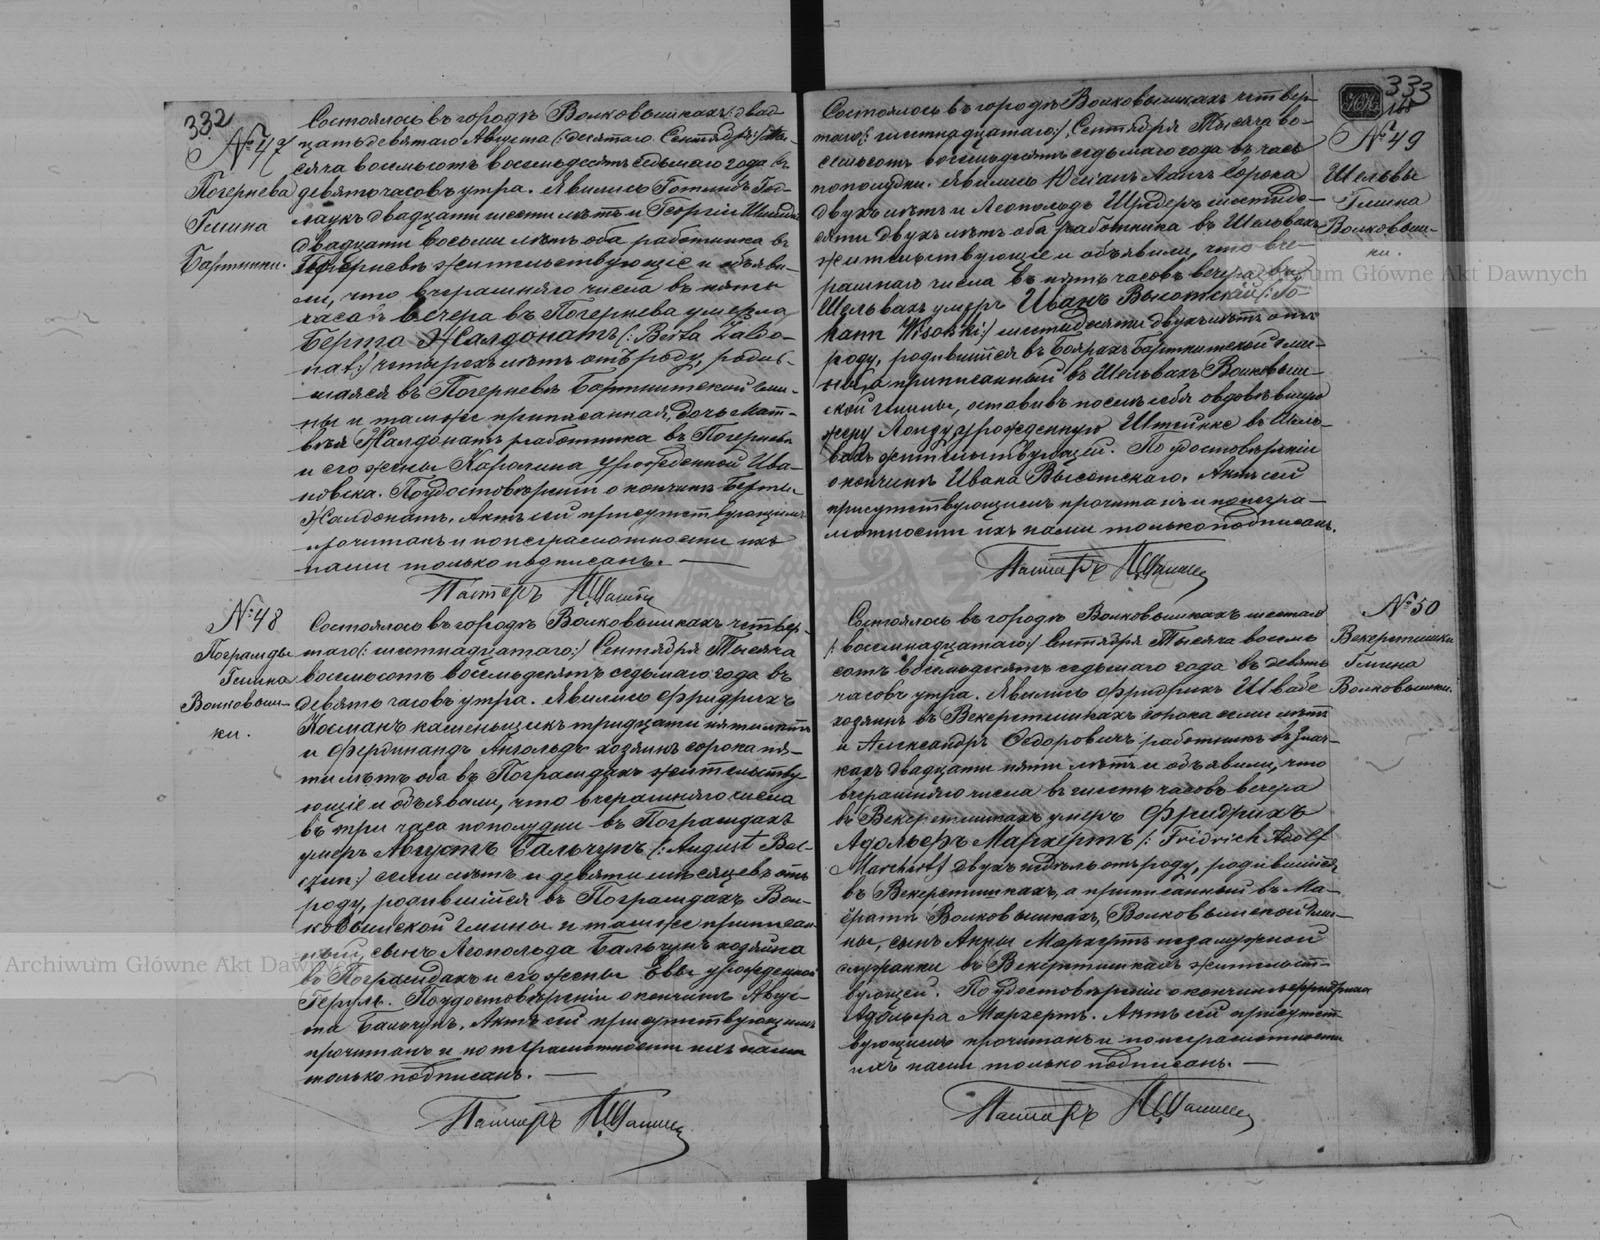 332
№ 47
Погернева
Гмина
Бартники.
Состоялось въ городѣ Волковышкахъ двад-
цать девятаго Августа (: десятаго Сентября :) Ты-
сяча восемьсотъ восемьдесятъ седьмаго года въ
девять часовъ утра. Явились Готлибъ Год-
лаукъ двадцати шести лѣтъ и Георгій
двадцати восьми лѣтъ оба работника въ
Погерневѣ жительствующіе и объяви-
ли, что вчерашняго числа въ пять
часовъ вечера въ Погернева умерла
Берта Жалдонатъ (: Berta Zaldo-
nat :) четырехъ лѣтъ отъ роду, родив-
шаяся въ Погерневѣ Бартнитской гми-
ны и тамже приписанная, дочь Мат-
вѣя Жалдонатъ работника въ Погерневѣ
и его жены Каролина урожденной Ива-
новска. По удостовѣреніи о кончинѣ Берты
Жалдонатъ, Актъ сей присутствующимъ
прочитанъ и по неграмотности ихъ
нами только подписанъ.
Пасторъ
№ 48
Пограмды
Гмина
Волковыш-
ки.
Состоялось въ городѣ Волковышкахъ четвер-
таго (: шестнадцатаго :) Сентября Тысяча
восемьсотъ восемьдесятъ седьмаго года въ
девять часовъ утра. Явились Фридрихъ
Косманъ каменьщикъ тридцати пяти лѣтъ
и Фердинандъ Ангольдъ хозяинъ сорока пя-
ти лѣтъ оба въ Пограмдахъ жительству-
ющіе и объявили, что вчерашняго числа
въ три часа пополудни въ Пограмдахъ
умеръ Августъ Бальчунъ (: August Bal-
czun :) семи лѣтъ и девяти мѣсяцевъ отъ
роду, родившійся въ Пограмдахъ Вол-
ковышской гмины и тамже приписан-
ный, сынъ Леопольда Бальчунъ хозяина
въ Пограмдахъ и его жены Евы урожденной
Геруль. По удостовѣреніи о кончинѣ Авгус-
та Бальчунъ, Актъ сей присутствующимъ
прочитанъ и по неграмотности ихъ нами
только подписанъ.
Пасторъ
333
№ 49
Шельвы
Гмина
Волковыш-
ки.
Состоялось въ городѣ Волковышкахъ четвер-
таго (: шестнадцатаго :) Сентября Тысяча во-
семьсотъ восемьдесятъ седьмаго года въ часъ
пополудни. Явились Юліанъ Лангъ сорока
двухъ лѣтъ и Леопольдъ Шредеръ шестиде-
сяти двухъ лѣтъ оба работника въ Шельвахъ
жительствующіе и объявили, что вче-
рашняго числа въ пять часовъ вечера въ
Шельвахъ умеръ Иванъ Высотскій (: Jo-
hann Wisotzki :) шестидесяти двухъ лѣтъ отъ
роду, родившійся въ Боярахъ Бартнитской гми-
ны а приписанный въ Шельвахъ Волковыш-
ской гмины, оставивъ послѣ себя овдовѣвшую
жену урожденную Штейнке въ Шель-
вахъ жительствующей. По удостовѣреніи
о кончинѣ Ивана Высотскаго, Актъ сей
присутствующимъ прочитанъ и по негра-
мотности ихъ нами только подписанъ.
Пасторъ
№ 50
Векеротишки
Гмина
Волковышки.
Состоялось въ городѣ Волковышкахъ шестаго
(: восемнадцатаго :) Сентября Тысяча восемь
сотъ восемьдесятъ седьмаго года въ девять
часовъ утра. Явились Фридрихъ Швабе
хозяинъ въ Векеротишкахъ сорока семи лѣтъ
и Александръ Федоровичъ работникъ въ
кахъ двадцати пяти лѣтъ и объявили, что
вчерашняго числа въ шесть часовъ вечера
въ Векеротишкахъ умеръ Фридрихъ
Адольфъ Мархертъ (: Fridrich Adolf
Marchert :) двухъ недѣль отъ роду, родившійся
въ Векеротишкахъ, а приписанный въ Ма-
Волковышкахъ, Волковышской гми-
ны, сынъ Анны Мархертъ незамужной
служанки въ Векеротишкахъ жительст-
вующей. По удостовѣреніи о кончинѣ Фридриха
Адольфа Мархертъ. Актъ сей присутст-
вующимъ прочитанъ и по неграмотности
ихъ нами только подписанъ.
Пасторъ
Archiwum Główne Akt Dawnych
Archiwum Główne Akt Dawnych